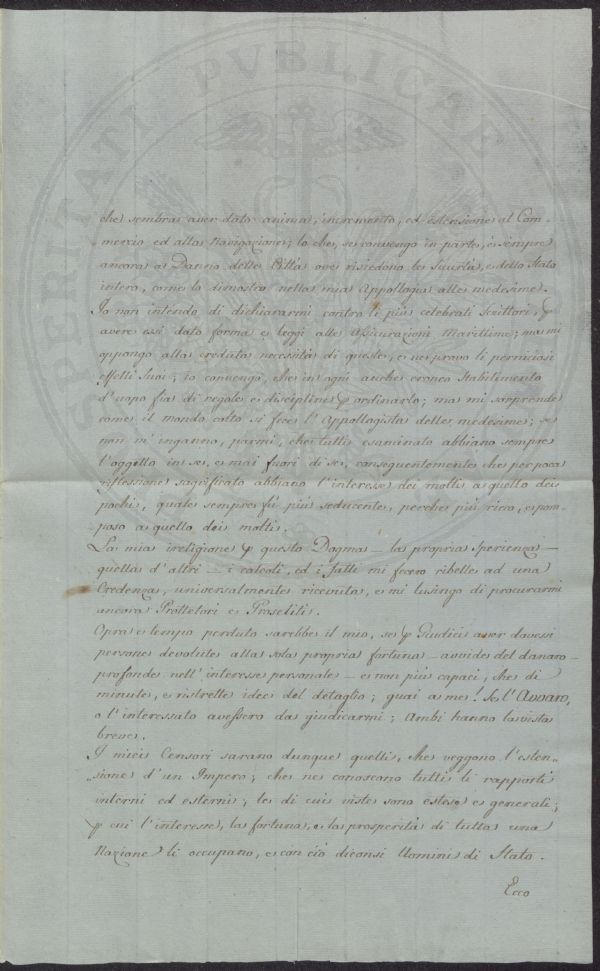 PROSPERITATI PVBLICAE
che sembra aver dato anima, incremento, ed estensione al Com„
„mercio ed alla Navigazione; lo che, se convengo in parte, è sempre
ancora a Danno delle Città ove risiedono le Sicurtà, e dello Stato
intero, come lo dimostro nella mia Appollogia alle medesime.
Io non intendo di dichiararmi contro li più celebrati Scrittori, ꝑ
avere essi dato forma e leggi alle Assicurazioni Marittime; ma mi
oppongo alla creduta necessità di queste, e ne provo li perniciosi
effetti suoi; io convengo, che in ogni anche eroneo Stabilimento
d'uopo fia di regole e discipline ꝑ ordinarlo; ma mi sorprende
come il mondo colto si fece l'Appollogista delle medesime; se
non m'inganno, parmi, che tutti esaminato abbiano sempre
l'oggetto in se, e mai fuori di se, conseguentemente che per poca
riflessione sagrificato abbiano l'interesse dei molti a quello dei
pochi, quale sempre fù più seducente, perche più ricco, e pom„
poso a quello dei molti.
La mia ireligione ꝑ questo Dogma — la propria sperienza —
quella d'altri — i calcoli, ed i fatti mi fecero ribelle ad una
Credenza, universalmente ricevuta, e mi lusingo di procurarmi
ancora Prottetori e Proseliti.
Opra e tempo perduto sarebbe il mio, se ꝑ Giudici aver dovessi
persone devolute alla sola propria fortuna — avvide del danaro —
profonde nell'interesse personale — e non più capaci, che di
minute, e ristrette idee del detaglio; guai a me! Se l'Avvaro,
o l'interessato avessero da giudicarmi; Ambi hanno la vista
breve.
I miei Censori sarano dunque quelli, che veggono l'esten„
„sione d'un Impero; che ne conoscono tutti li rapporti
interni ed esterni; le di cui viste sono estese e generali;
ꝑ cui l'interesse, la fortuna, e la prosperità di tutta una
Nazione li occupano, e con ciò diconsi Uomini di Stato.
Ecco